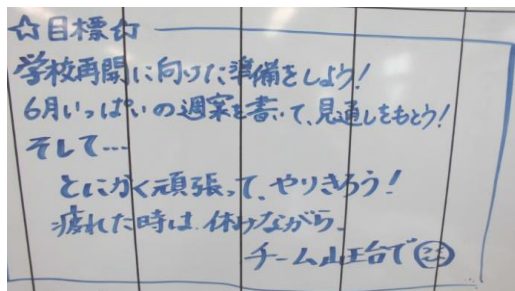 ☆目標☆
学校再開に向けた準備をしよう!
6月いっぱいの週案を書いて、見通しをもとう!
そして…
とにかく頑張って、やりきろう!
疲れた時は休みながら、
チーム山王台で